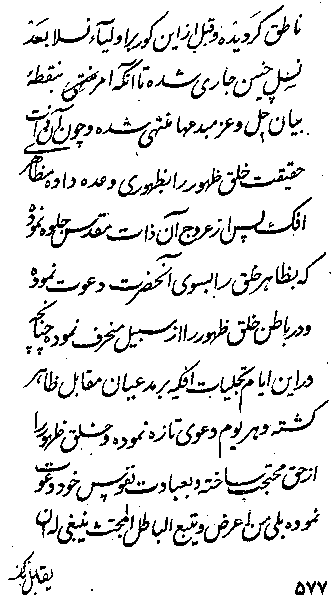 ناطق گردیده و قبل از این کور بر اولیاء نسلا بعد
نسل چنین جاری شده تا آنکه امر منتهی بنقطهٔ
بیان جل و عز مبدعها منتهی شده و چون آن ذات
حقیقت خلق ظهور را بظهوری وعده داده مظاهر
افک پس از عروج آن ذات مقدس جلوه نموده
که بظاهر خلق را بسوی آنحضرت دعوت نموده
و در باطن خلق ظهور را از سبیل منحرف نموده چنانچه
در این ایام تجلیات افکیه بر مدعیان مقابل ظاهر
گشته و هر یوم دعوی تازه نموده و خلق ظهور را
از حق محتجب ساخته و بعبادت نفوس خود دعوت
نموده بلی من اعرض و یتبع الباطل المجتث ینبغی له ان
یقابل بکل
۵۷۷